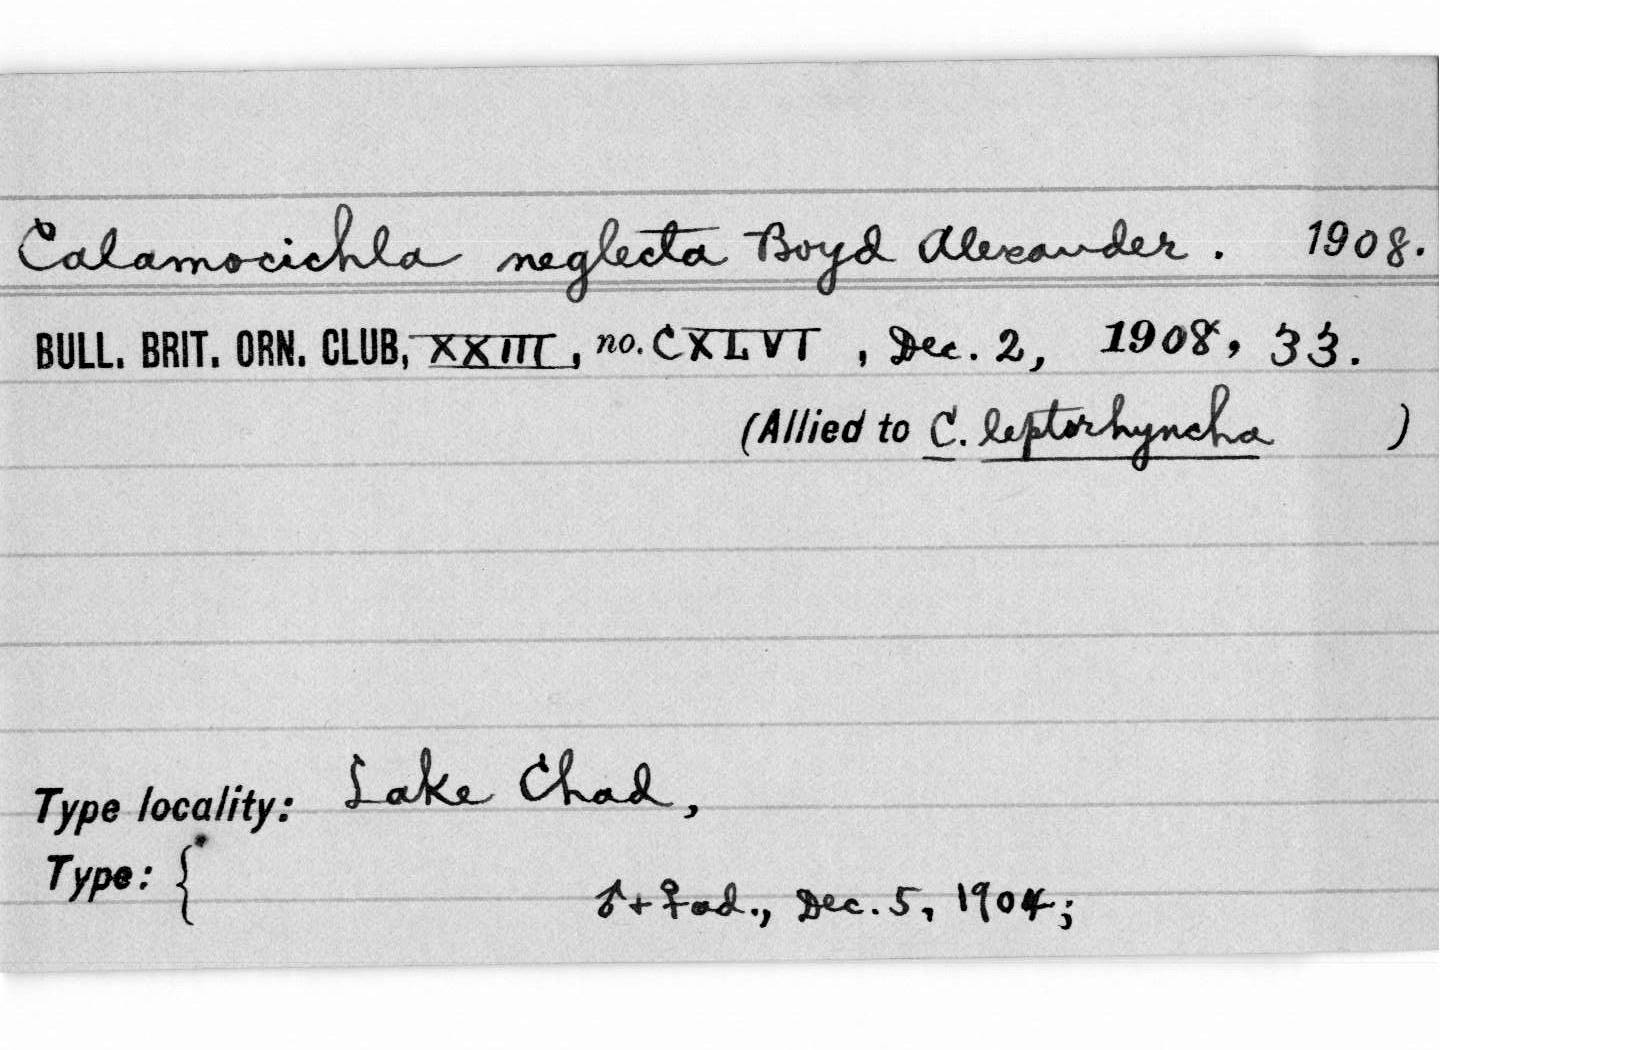 Calamocichla neglecta Boyd Alexander. 1908.
BULL. BRIT. ORN. CLUB, XXIII, no. CXLVI, Dec. 2, 1908, 33.
(Allied to C. leptorhyncha )
Type locality: Lake Chad,
Type: { ♂+♀ad., Dec. 5, 1904;